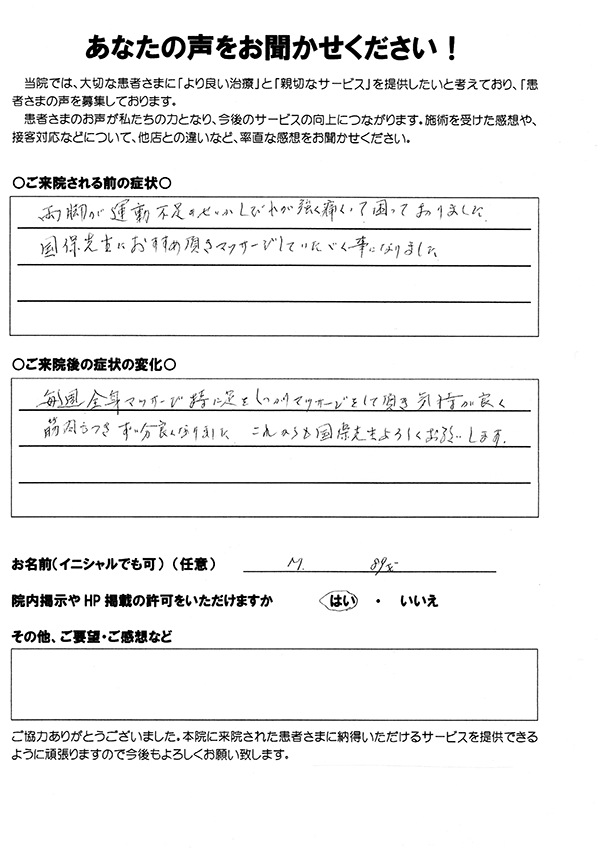 あなたの声をお聞かせください!
当院では、大切な患者さまに「より良い治療」と「親切なサービス」を提供したいと考えており、「患
者さまの声を募集しております。
患者さまのお声が私たちの力となり、今後のサービスの向上につながります。施術を受けた感想や、
接客対応などについて、他店との違いなど、率直な感想をお聞かせください。
○ご来院される前の症状○
両脚が運動不足のせいかしびれが強く痛くて困っておりました
国保先生におすすめ頂きマッサージしていただく事になりました
○ご来院後の症状の変化○
毎週全身マッサージ特に足をしっかりマッサージをして頂き気持が良く
筋肉もつきずい分良くなりました これからも国保先生よろしくお願いします。
お名前(イニシャルでも可)(任意) M. 89才
院内掲示やHP掲載の許可をいただけますか はい ・ いいえ
その他、ご要望・ご感想など
ご協力ありがとうございました。本院に来院された患者さまに納得いただけるサービスを提供できる
ように頑張りますので今後もよろしくお願い致します。